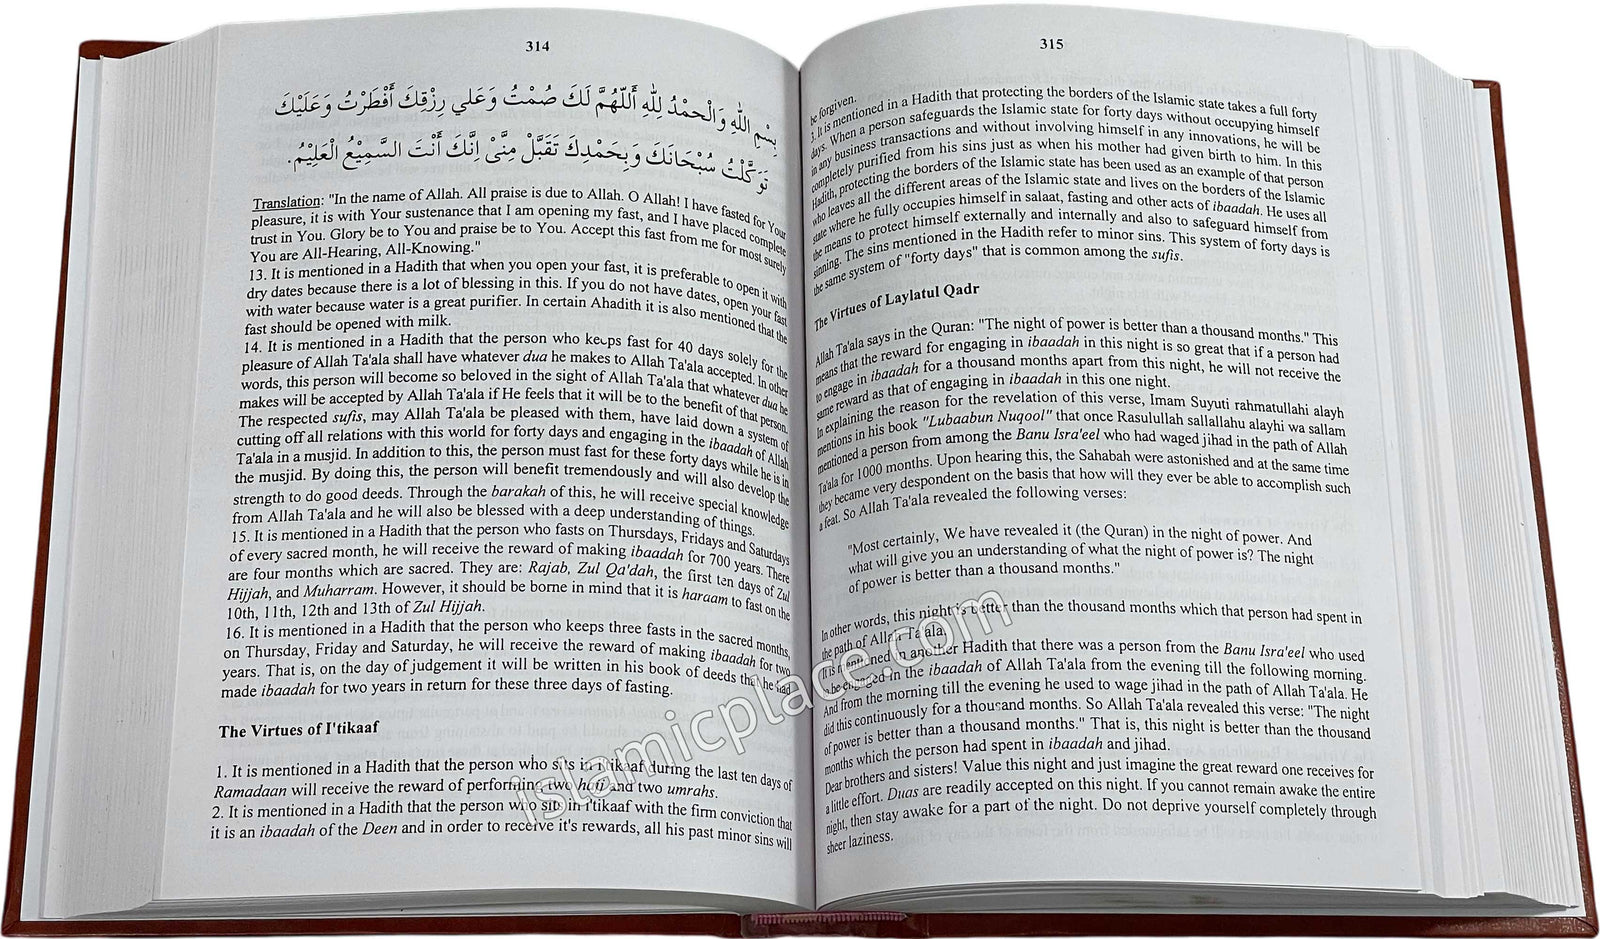 314
بِسْمِ اللهِ وَالْحَمْدُ لِلّٰهِ اَللّٰهُمَّ لَكَ صُمْتُ وَعَلي رِزْقِكَ أَفْطَرْتُ وَعَلَيْكَ
تَوَكَّلْتُ سُبْحَانَكَ وَبِحَمْدِكَ تَقَبَّلْ مِنِّيْ اِنَّكَ أَنْتَ السَّمِيْعُ الْعَلِيْمُ.
Translation: "In the name of Allah. All praise is due to Allah. O Allah! I have fasted for Your
pleasure, it is with Your sustenance that I am opening my fast, and I have placed complete
trust in You. Glory be to You and praise be to You. Accept this fast from me for most surely
You are All-Hearing, All-Knowing."
13. It is mentioned in a Hadith that when you open your fast, it is preferable to open it with
dry dates because there is a lot of blessing in this. If you do not have dates, open your fast
with water because water is a great purifier. In certain Ahadith it is also mentioned that the
fast should be opened with milk.
14. It is mentioned in a Hadith that the person who keeps fast for 40 days solely for the
pleasure of Allah Ta'ala shall have whatever dua he makes to Allah Ta'ala accepted. In other
words, this person will become so beloved in the sight of Allah Ta'ala that whatever dua he
makes will be accepted by Allah Ta'ala if He feels that it will be to the benefit of that person.
The respected sufis, may Allah Ta'ala be pleased with them, have laid down a system of
cutting off all relations with this world for forty days and engaging in the ibaadah of Allah
Ta'ala in a musjid. In addition to this, the person must fast for these forty days while he is in
the musjid. By doing this, the person will benefit tremendously and will also develop the
strength to do good deeds. Through the barakah of this, he will receive special knowledge
from Allah Ta'ala and he will also be blessed with a deep understanding of things.
15. It is mentioned in a Hadith that the person who fasts on Thursdays, Fridays and Saturdays
of every sacred month, he will receive the reward of making ibaadah for 700 years. There
are four months which are sacred. They are: Rajab, Zul Qa'dah, the first ten days of Zul
Hijjah, and Muharram. However, it should be borne in mind that it is haraam to fast on the
10th, 11th, 12th and 13th of Zul Hijjah.
16. It is mentioned in a Hadith that the person who keeps three fasts in the sacred months,
on Thursday, Friday and Saturday, he will receive the reward of making ibaadah for two
years. That is, on the day of judgement it will be written in his book of deeds that he had
made ibaadah for two years in return for these three days of fasting.
The Virtues of I'tikaaf
1. It is mentioned in a Hadith that the person who sits in i'tikaaf during the last ten days of
Ramadaan will receive the reward of performing two hajj and two umrahs.
2. It is mentioned in a Hadith that the person who sits in i'tikaaf with the firm conviction that
it is an ibaadah of the Deen and in order to receive it's rewards, all his past minor sins will
315
be forgiven.
3. It is mentioned in a Hadith that protecting the borders of the Islamic state takes a full forty
days. When a person safeguards the Islamic state for forty days without occupying himself
in any business transactions and without involving himself in any innovations, he will be
completely purified from his sins just as when his mother had given birth to him. In this
Hadith, protecting the borders of the Islamic state has been used as an example of that person
who leaves all the different areas of the Islamic state and lives on the borders of the Islamic
state where he fully occupies himself in salaat, fasting and other acts of ibaadah. He uses all
the means to protect himself externally and internally and also to safeguard himself from
sinning. The sins mentioned in the Hadith refer to minor sins. This system of forty days is
the same system of "forty days" that is common among the sufis.
The Virtues of Laylatul Qadr
Allah Ta'ala says in the Quran: "The night of power is better than a thousand months." This
means that the reward for engaging in ibaadah in this night is so great that if a person had
to engage in ibaadah for a thousand months apart from this night, he will not receive the
same reward as that of engaging in ibaadah in this one night.
In explaining the reason for the revelation of this verse, Imam Suyuti rahmatullahi alayh
mentions in his book "Lubaabun Nuqool" that once Rasulullah sallallahu alayhi wa sallam
mentioned a person from among the Banu Isra'eel who had waged jihad in the path of Allah
Ta'ala for 1000 months. Upon hearing this, the Sahabah were astonished and at the same time
they became very despondent on the basis that how will they ever be able to accomplish such
a feat. So Allah Ta'ala revealed the following verses:
"Most certainly, We have revealed it (the Quran) in the night of power. And
what will give you an understanding of what the night of power is? The night
of power is better than a thousand months."
In other words, this night is better than the thousand months which that person had spent in
the path of Allah Ta'ala.
It is mentioned in another Hadith that there was a person from the Banu Isra'eel who used
to be engaged in the ibaadah of Allah Ta'ala from the evening till the following morning.
And from the morning till the evening he used to wage jihad in the path of Allah Ta'ala. He
did this continuously for a thousand months. So Allah Ta'ala revealed this verse: "The night
of power is better than a thousand months." That is, this night is better than the thousand
months which the person had spent in ibaadah and jihad.
Dear brothers and sisters! Value this night and just imagine the great reward one receives for
a little effort. Duas are readily accepted on this night. If you cannot remain awake the entire
night, then stay awake for a part of the night. Do not deprive yourself completely through
sheer laziness.
islamicplace.com